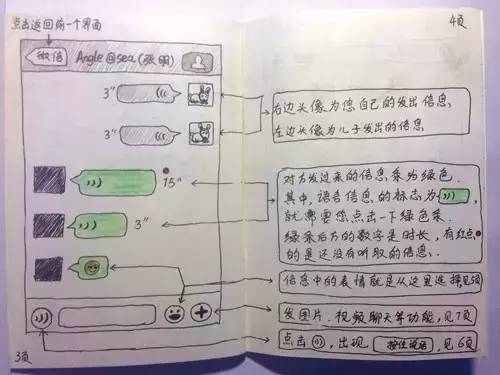 点击返回前一个界面
4页
微信 Angle@sea(张明)
3"
3"
右边头像为您自己的发出信息、
左边头像为儿子发出的信息
15"
3"
对方发过来的信息条为绿色.
其中,语音信息的标志为
就需要您点击一下绿色条.
绿条后方的数字是时长,有红点
的是还没有听取的信息、.
信息中的表情就是从这里选择见5页
发图片、视频聊天等功能,见7页
点击 ,出现 按住说话 ,见6页
3页